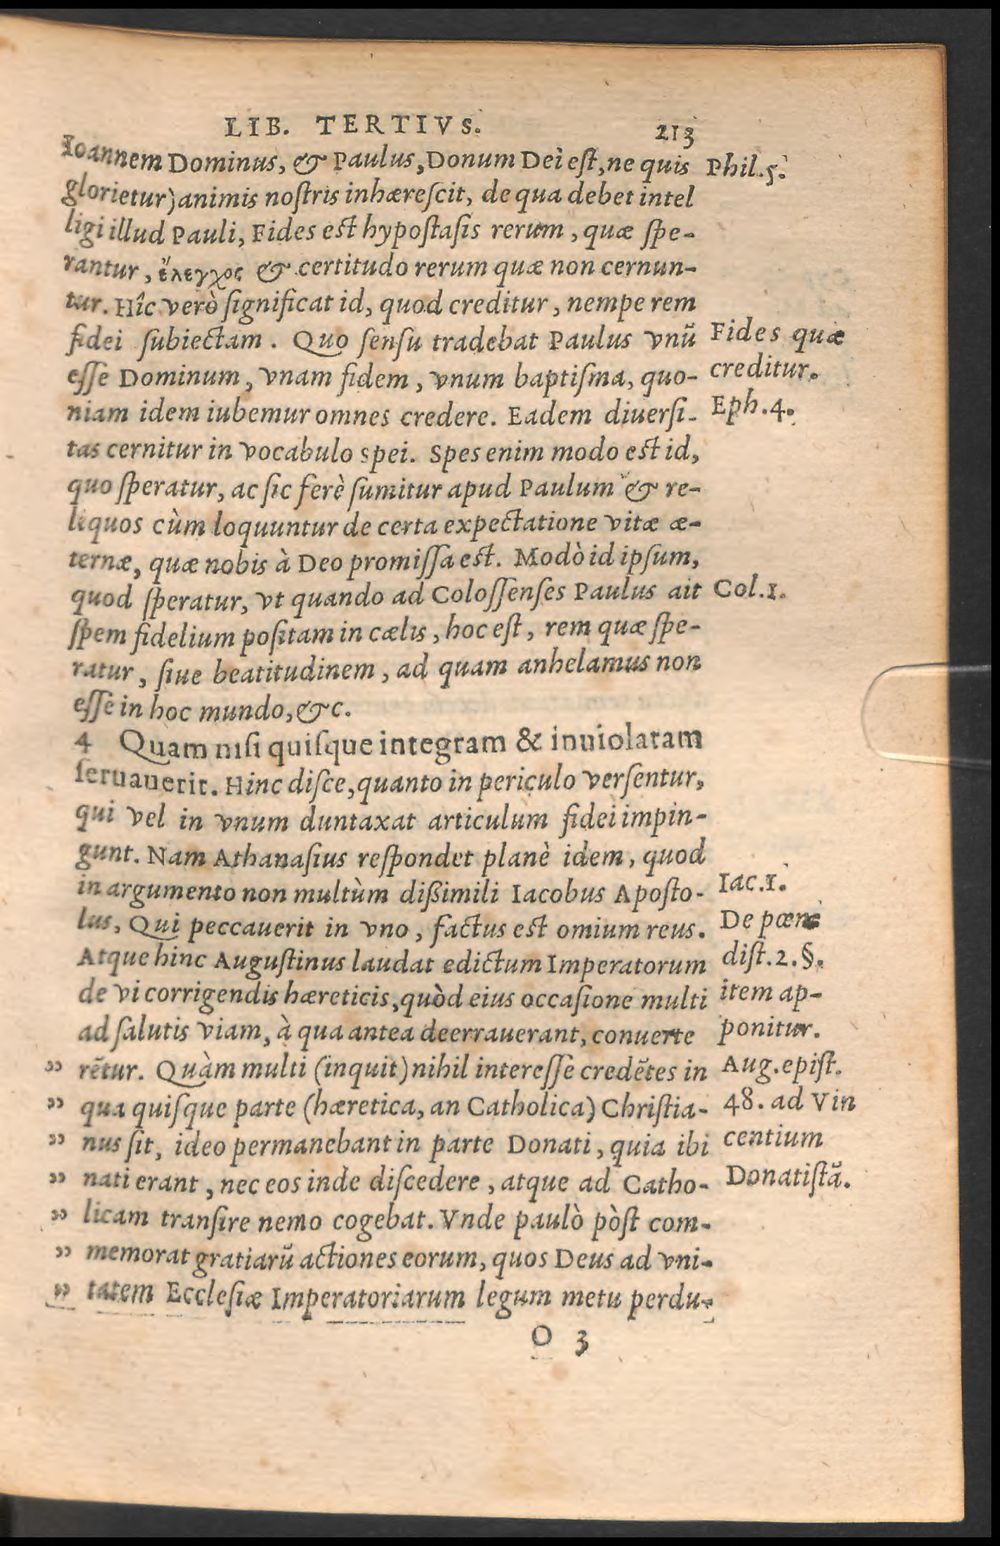 LIB. TERTIVS. 213
Ioannem Dominus, & Paulus, Donum Dei est, ne quis
glorietur) animis nostris inhærescit, de qua debet intel
ligi illud Pauli, Fides est hypostasis rerum, quæ spe-
rantur, ἔλεγχος & certitudo rerum quæ non cernun-
tur. Hîc verò significat id, quod creditur, nempe rem
fidei subiectam. Quo sensu tradebat Paulus vnũ
esse Dominum, vnam fidem, vnum baptisma, quo-
niam idem iubemur omnes credere. Eadem diuersi-
tas cernitur in vocabulo spei. Spes enim modo est id,
quo speratur, ac sic ferè sumitur apud Paulum & re-
liquos cùm loquuntur de certa expectatione vitæ æ-
ternæ, quæ nobis à Deo promissa est. Modò id ipsum,
quod speratur, vt quando ad Colossenses Paulus ait
spem fidelium positam in cælis, hoc est, rem quæ spe-
ratur, siue beatitudinem, ad quam anhelamus non
esse in hoc mundo, &c.
4 Quam nisi quisque integram & inuiolatam
seruauerit. Hinc disce, quanto in periculo versentur,
qui vel in vnum duntaxat articulum fidei impin-
gunt. Nam Athanasius respondet planè idem, quod
in argumento non multùm dißimili Iacobus Aposto-
lus, Qui peccauerit in vno, factus est omium reus.
Atque hinc Augustinus laudat edictum Imperatorum
de vi corrigendis hæreticis, quòd eius occasione multi
ad salutis viam, à qua antea deerrauerant, conuerte
„ rẽtur. Quàm multi (inquit) nihil interesse credẽtes in
„ qua quisque parte (hæretica, an Catholica) Christia-
„ nus sit, ideo permanebant in parte Donati, quia ibi
„ nati erant, nec eos inde discedere, atque ad Catho-
„ licam transire nemo cogebat. Vnde paulò pòst com-
„ memorat gratiarũ actiones eorum, quos Deus ad vni-
„ tatem Ecclesiæ Imperatoriarum legum metu perdu-
O 3
Phil.5.
Fides quæ
creditur.
Eph.4.
Col.1.
Iac.1.
De pœni
dist.2.§.
item ap-
ponitur.
Aug.epist.
48. ad Vin
centium
Donatistã.